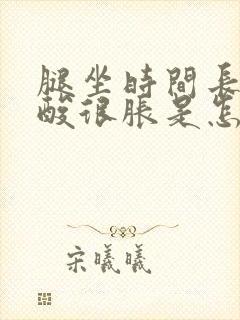 腿坐時間長
酸很脹是怎
宋曦曦